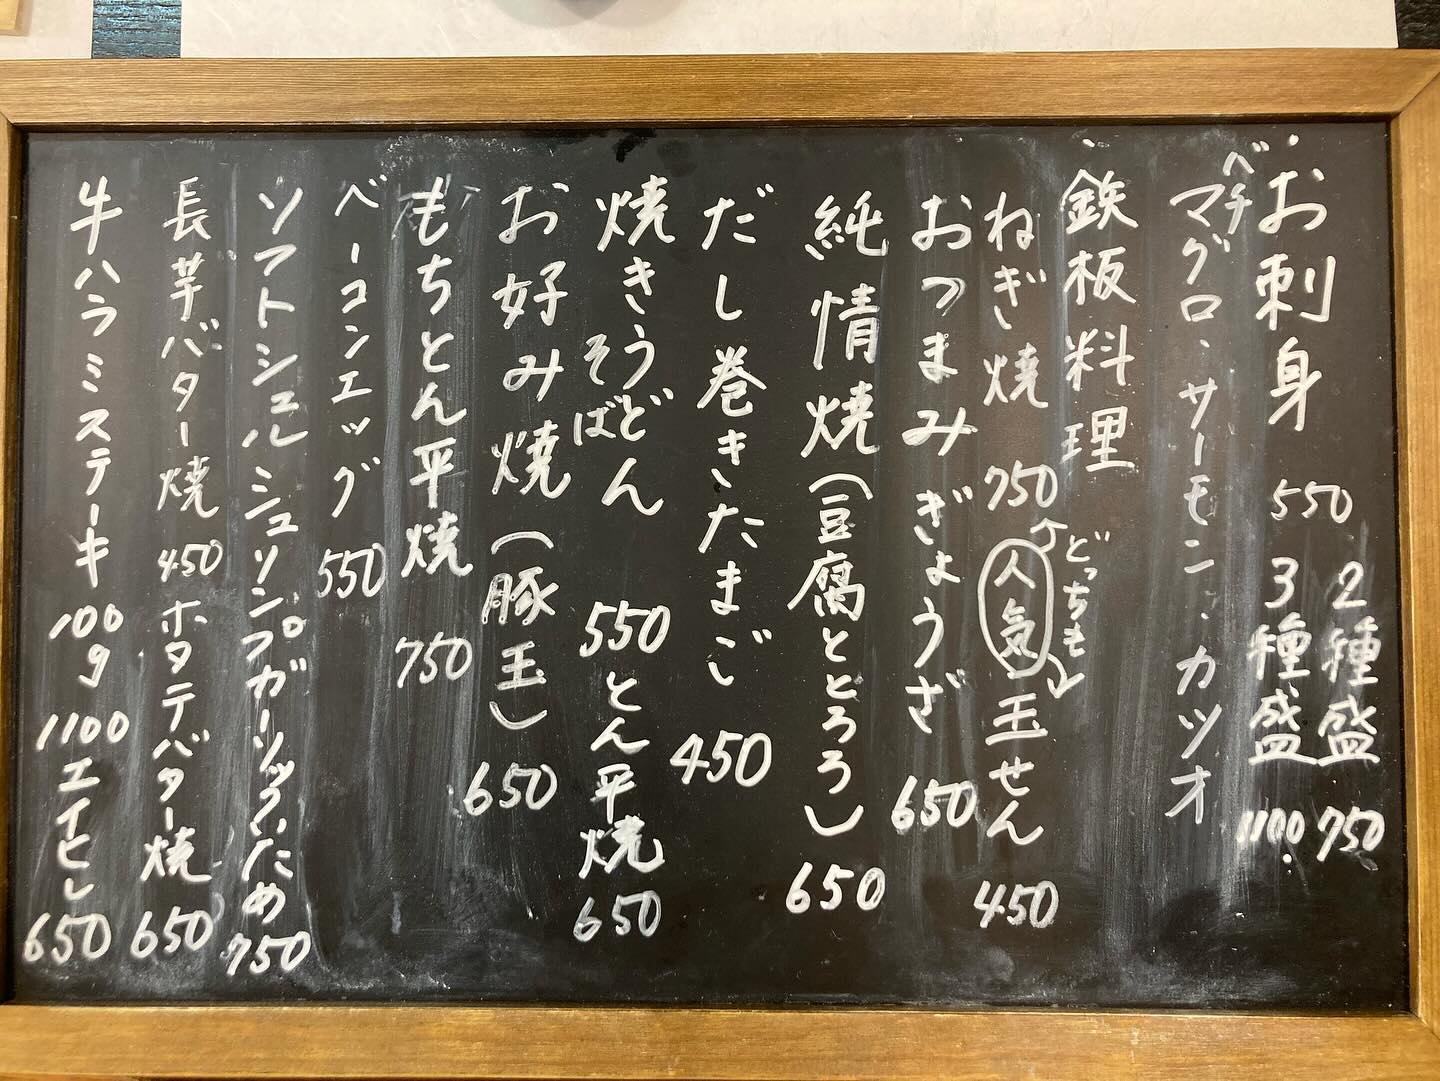 お刺身 550 2種盛 750
3種盛 1100
ベチマグロ、サーモン、カツオ
鉄板料理
ねぎ焼 750 人気 玉せん 450
どっちも
おつまみぎょうざ 650
純情焼(豆腐ととろろ) 650
だし巻きたまご 450
焼きうどん 550 とん平焼 650
そば
お好み焼(豚玉) 650
もちとん平焼 750
ベーコンエッグ 550
ソフトシェルシュリンプガーリックいため 750
長芋バター焼 450 ホタテバター焼 650
牛ハラミステーキ 100g 1100 エイヒレ 650